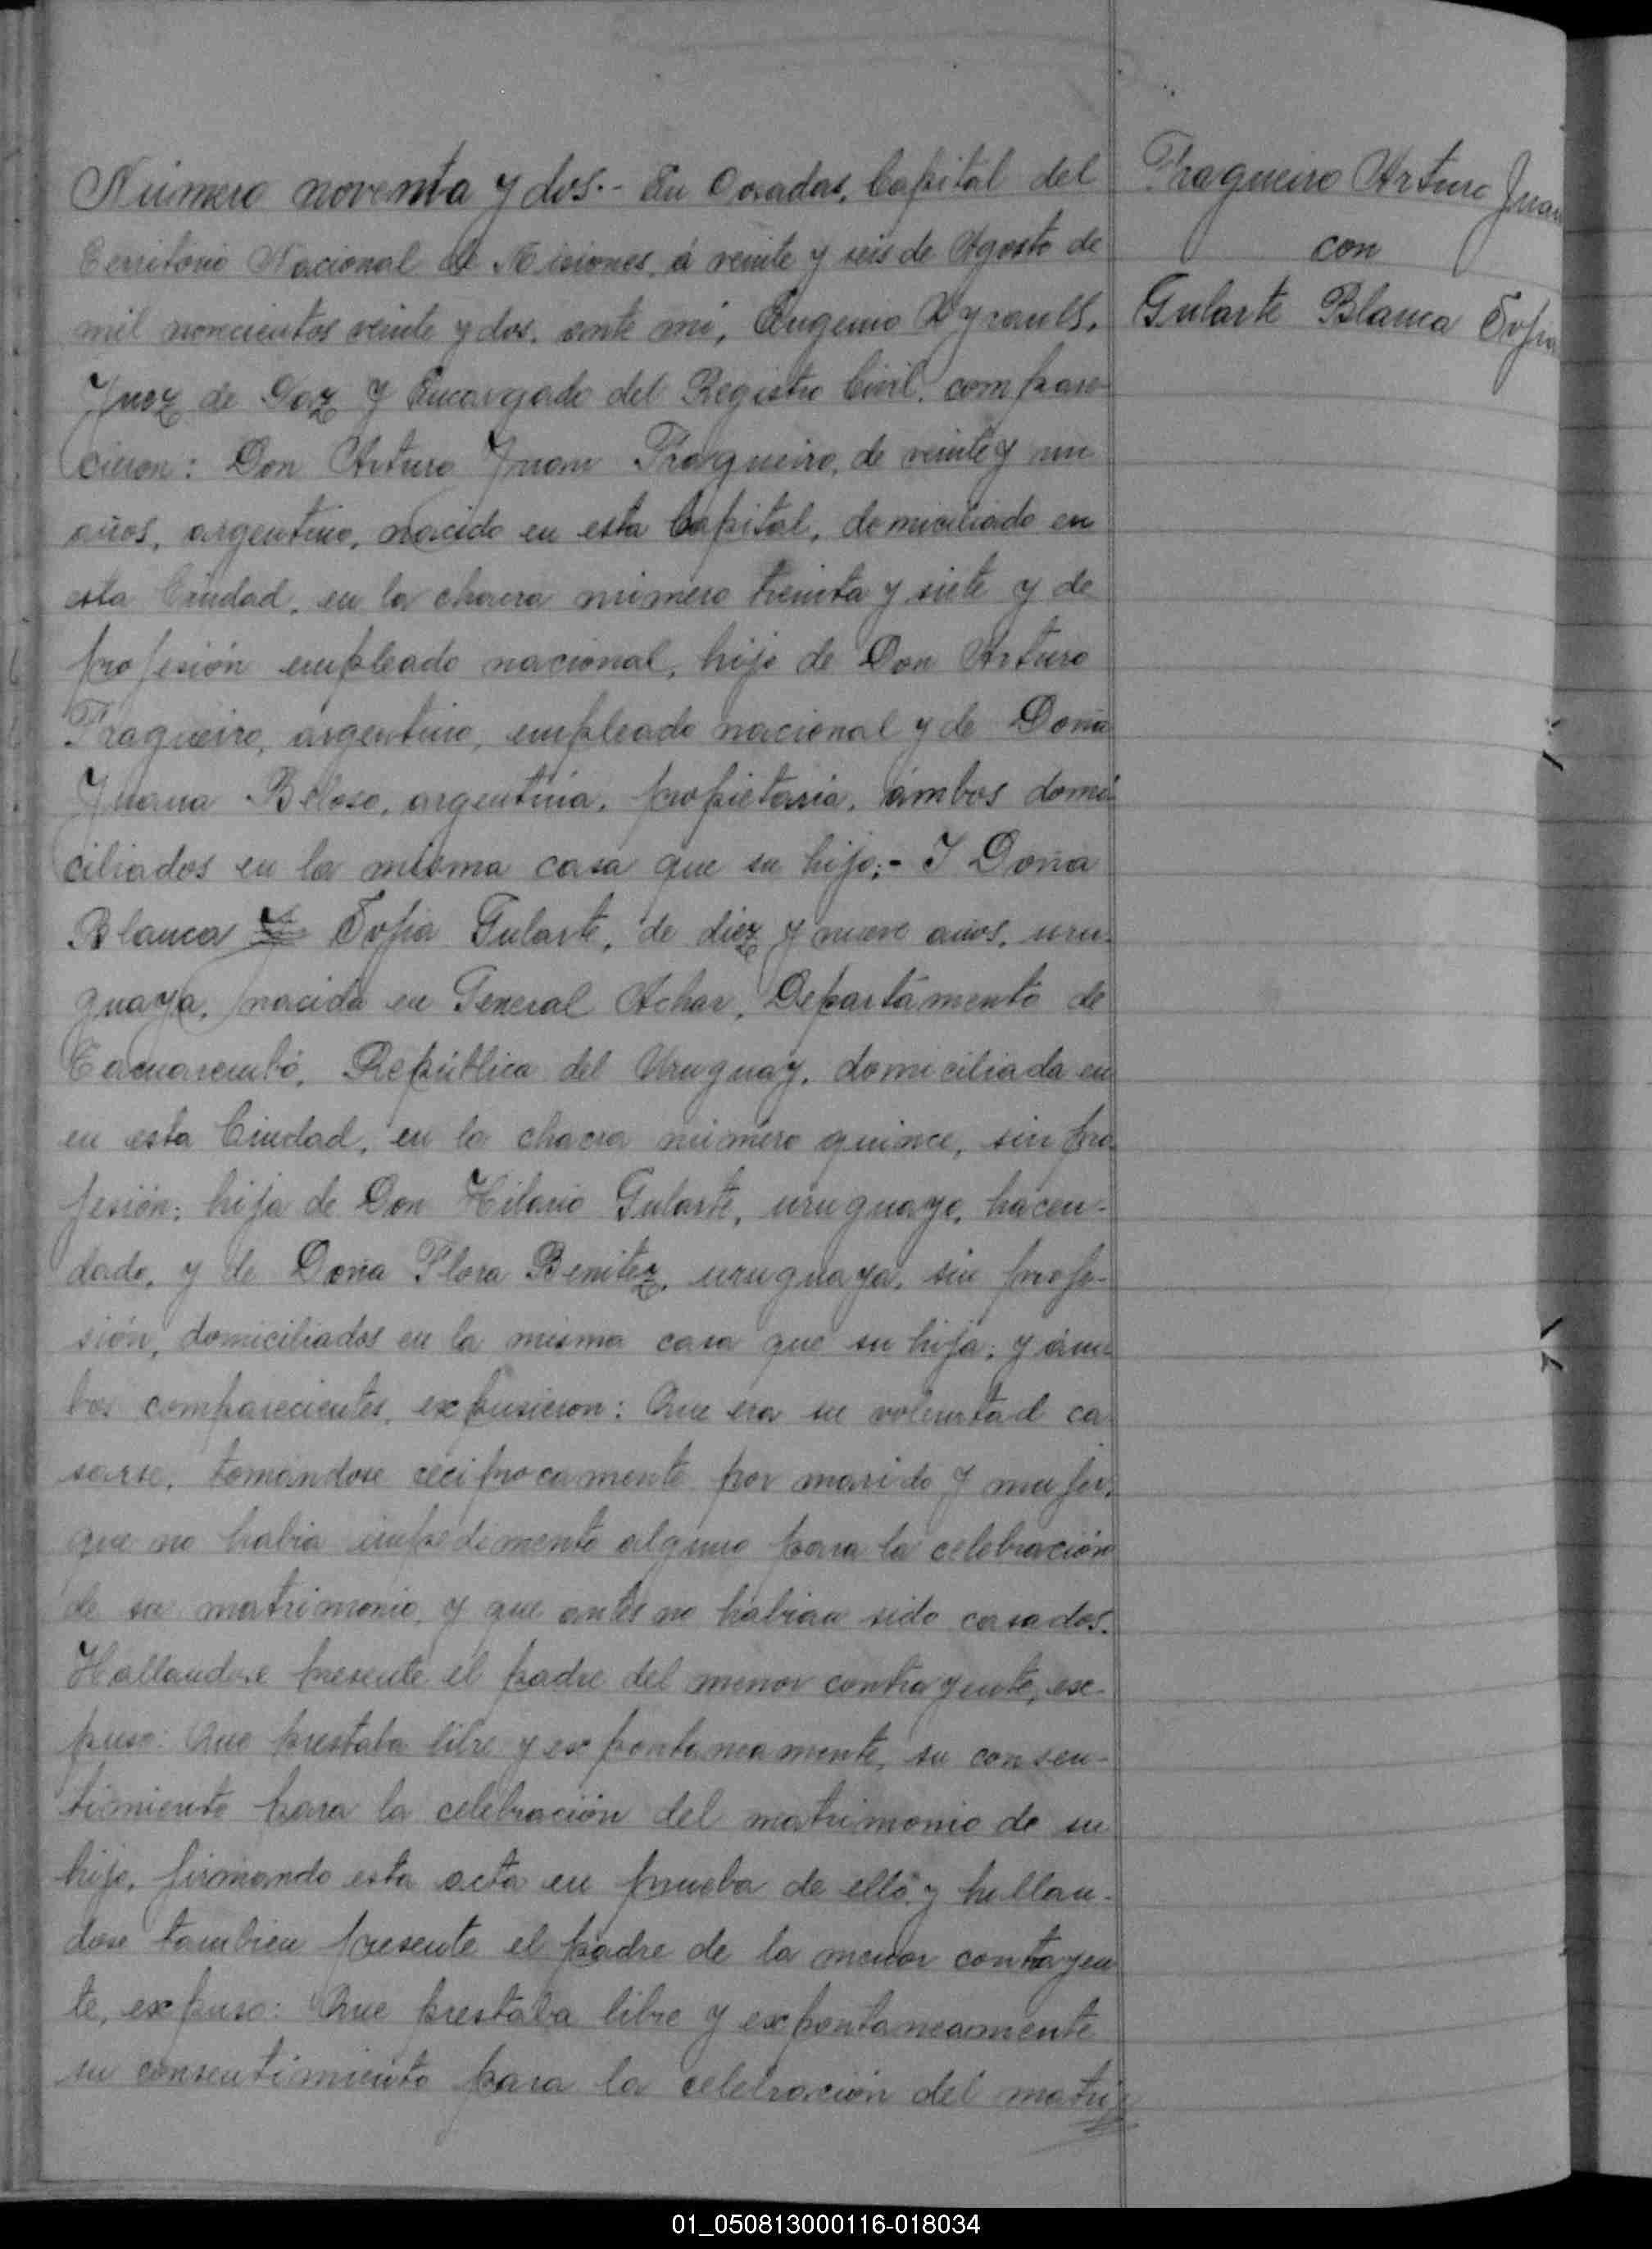 Número noventa y dos.- En Posadas, Capital del
Territorio Nacional de Misiones, á veinte y seis de Agosto de
mil novecientos veinte y dos, ante mí, Eugenio
Juez de Paz y Encargado del Registro Civil, compare-
cieron: Don Arturo Juan Fragueiro, de veinte y un
años, argentino, nacido en esta Capital, domiciliado en
esta Ciudad, en la chacra número treinta y siete y de
profesión empleado nacional, hijo de Don Arturo
Fragueiro, argentino, empleado nacional y de Doña
Juana Beloso, argentina, propietaria, ámbos domi-
ciliados en la misma casa que su hijo;- I Doña
Blanca Sofia Gularte, de diez y nueve años, uru-
guaya, nacida en General Achar, Departamento de
Tacuarembó, República del Uruguay, domiciliada en
en esta Ciudad, en la chacra número quince, sin pro-
fesión; hija de Don Hilario Gularte, uruguayo, hacen-
dado, y de Doña Flora Benitez, uruguaya, sin profe-
sión, domiciliados en la misma casa que su hija; y ám-
bos comparecientes, expusieron: Que era su voluntad ca-
sarse, tomándose reciprocamente por marido y mujer,
que no habia impedimento alguno para la celebración
de su matrimonio, y que antes no habian sido casados.
Hallandose presente el padre del menor contrayente, ex-
puso: Que prestaba libre y expontaneamente, su consen-
timiento para la celebración del matrimonio de su
hijo, firmando esta acta en prueba de ello y hallan-
dose tambien presente el padre de la menor contrayen
te, expuso: Que prestaba libre y expontaneamente
su consentimiento para la celebración del matri-
Fragueiro Arturo Juan
con
Gularte Blanca Sofia
01_050813000116-018034